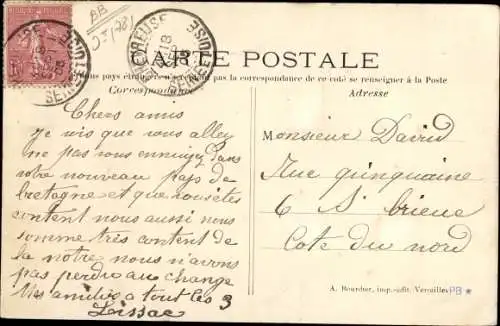 BB
CHEVREUSE
SEINE-ET-OISE
CARTE POSTALE
pays étrangers n'acceptant pas la correspondance de ce côté se renseigner à la Poste
Correspondance
Adresse
Chers amis
Je vis que vous alley
ne pas vous ennuiyer dans
votre nouveau pays de
bretagne et que vous êtes
content nous aussi nous
somme très content de
la notre nous n'avons
pas perdu au change
Mes amitiés a tout les 3
Monsieur David
Rue quinquaine
6 St brieuc
Cote du nord
A. Bourdier, imp.-édit. Versailles
PB